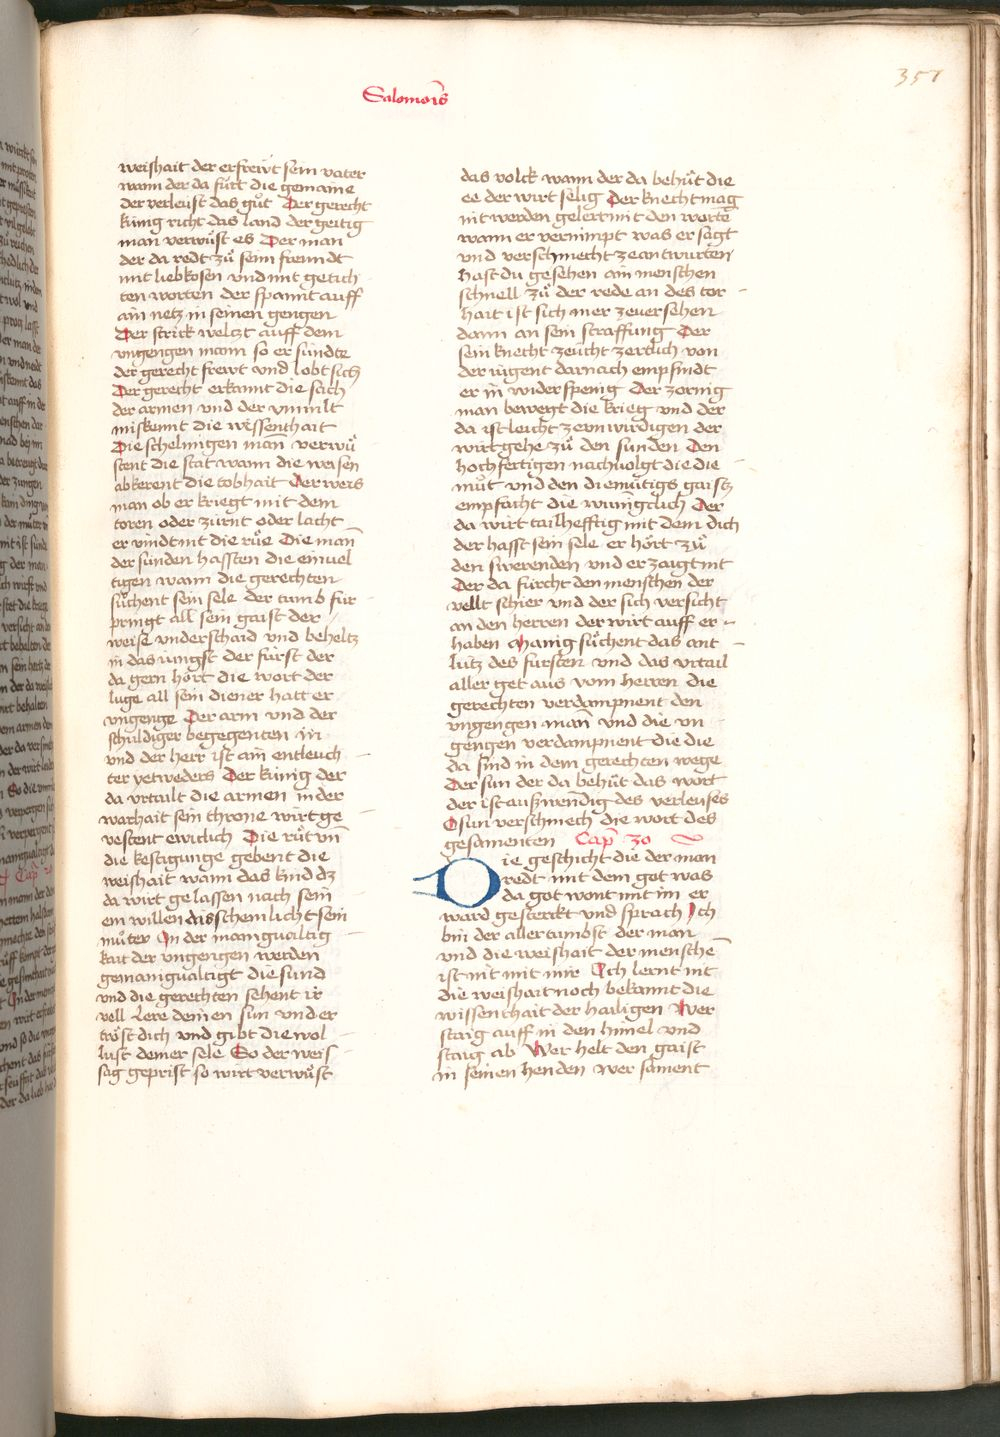 351
Salomōis
weishait der erfreiwt sein vater
wann der da fürt die gemaine
der verleust das gůt Der gerecht
künig richt das land der geitig
man verwüst es Der man
der da redt zů seim freundt
mit liebkosen vnd mit getich
ten worten der spannt auff
ain netz in seinen gengen
Der strick weltzt auff dem
vngengen mann so er sündtz
der gerecht frewt vnd lobt sich
Der gerecht erkannt die sach
der armen vnd der vnmilt
miskennt die wissenthait
Die schelmigen mañ verwů
stent die stat wann die weisen
abkerent die tobhait Der weis
man ob er kriegt mit dem
toren oder zürnt oder lacht
er vindt nit die růe Die mañ
der sünden hassten die einuel
tigen wann die gerechten
sůchent sein sele der tumb für
pringt all sein gaist der
weise vnderschaid vnd beheltz
in das iüngst der fürst der
da gern hört die wort der
luge all sein diener hatt er
vngenge Der arm vnd der
schuldiger begegenten in
vnd der herr ist ain entleuch
ter yetweders Der künig der
da vrtailt die armen in der
warhait sein throne wirt ge
vestent ewiclich Die růt vñ
die kestigunge gebent die
weishait wann das kind dz
da wirt gelassen nach sein
em willen das schemlicht sein
můter In der maniguältig
kait der vngengen werden
gemaniguältigt die sünd
vnd die gerechten sehent ir
vell Lere deinen sun vnd er
tröst dich vnd gibt die wol
lust deiner sele So der weis
sag geprist so wirt verwůst
das volck wann der da behůt die
ee der wirt sälig Der knecht mag
nit werden gelert mit den wortē
wann er vernimpt was er sagt
vnd verschmecht ze antwurten
hast du gesehen ain menschen
schnell zů der rede an des tor
hait ist sich mer ze uersehen
dann an sein straffung Der
sein knecht zeücht zertlich von
der iugent darnach empfindt
er in widerspenig Der zornig
man bewegt die krieg vnd der
da ist leicht ze vnwirdigen der
wirt gehe zů den sünden Den
hochfertigen nachuolgt die die
můt vnd den diemůtigs gaistz
empfacht die wunnigclich Der
da wirt tailhefftig mit dem dieb
der hasst sein sele er hört zů
den swerenden vnd er zaigt nit
Der da fürcht den menschen der
vellt schier vnd der sich versicht
an den herren der wirt auff er
haben Manig sůchent das ant
lütz des fürsten vnd das vrtail
aller get aus vom herren die
gerechten verdampnent den
vngengen mañ vnd die vn
gengen verdampnent die die
da sind in dem gerechten wege
Der sun der da behůt das wort
der ist außwendig des verleuses
O sun verschmech die wort des
gesamenten Cap̄ 30
Die geschicht die der man
redt mit dem got was
da got wont mit im er
ward gesterckt vnd sprach Ich
bin der aller tumbst der man
vnd die weishait der menschē
ist nit mit mir Ich lernt nit
die weishait noch bekannt die
wissenthait der hailigen Wer
staig auff in den himel vnd
staig ab Wer helt den gaist
in seinen henden wer sament